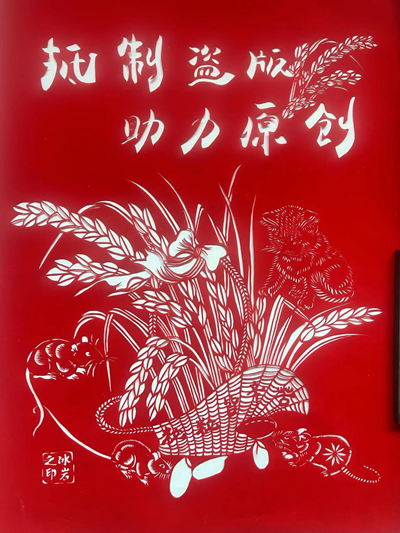 抵制盗版
助力原创
冰岩
之印